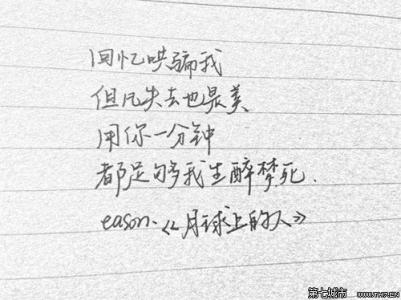 回忆哄骗我
但凡失去也最美
用你一分钟
都足够我生醉梦死.
eason.《月球上的人》
第七城市
WWW.TH7.CN